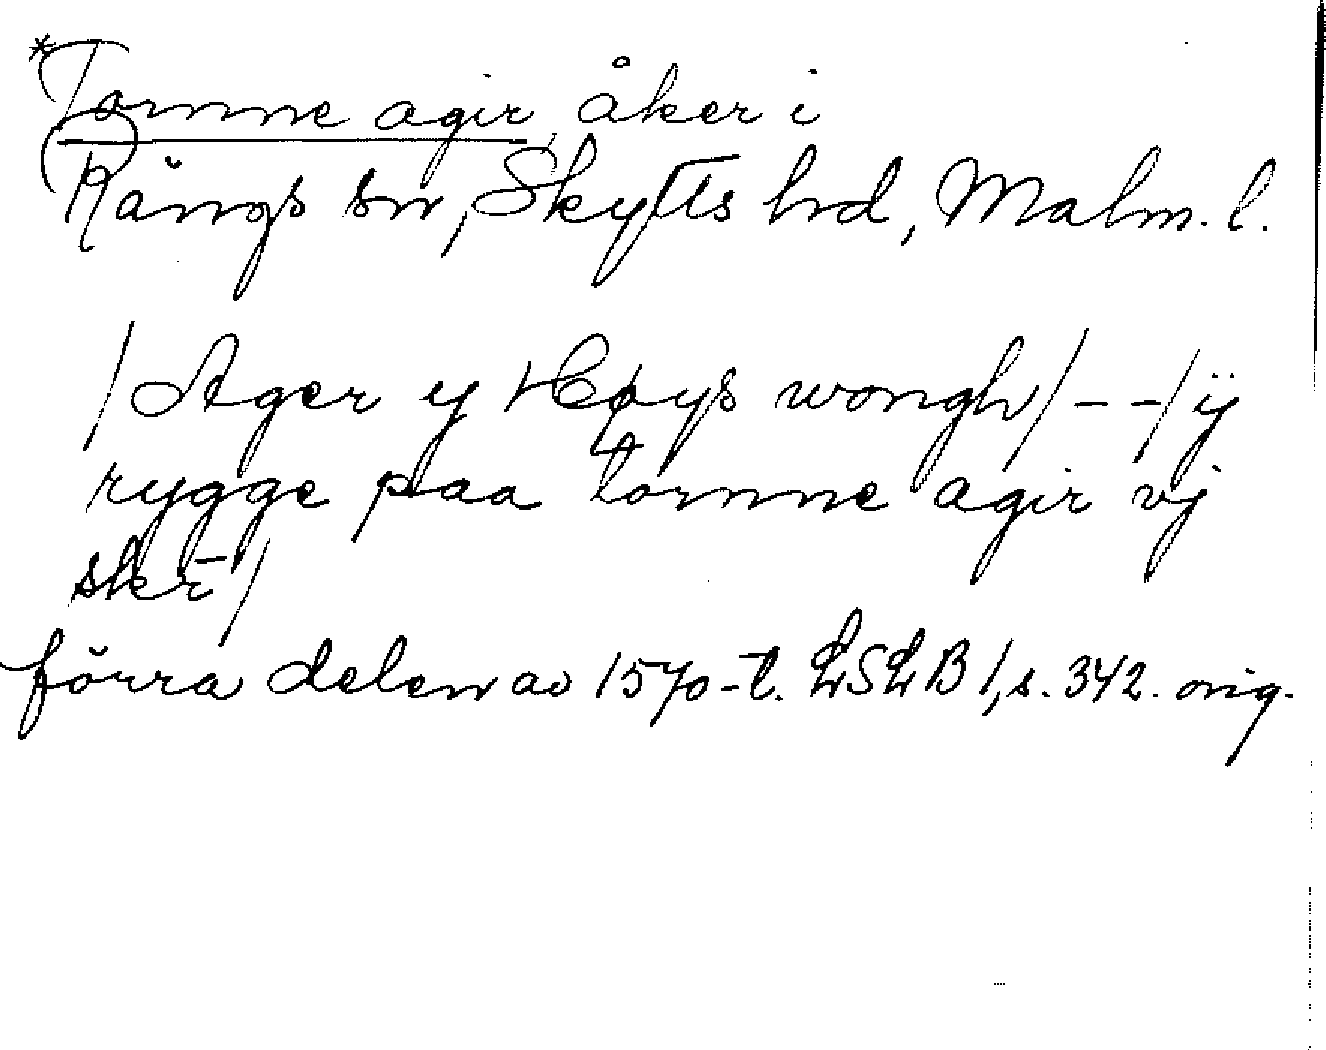 *Tornne agir, åker i
Rängs sn, Skytts hd, Malm. l.
/Ager y Høys wongh/--/ÿ
rygge paa tornne agir vj
skr̄/
förra delen av 1570-t. LSLB 1, s. 342. orig.